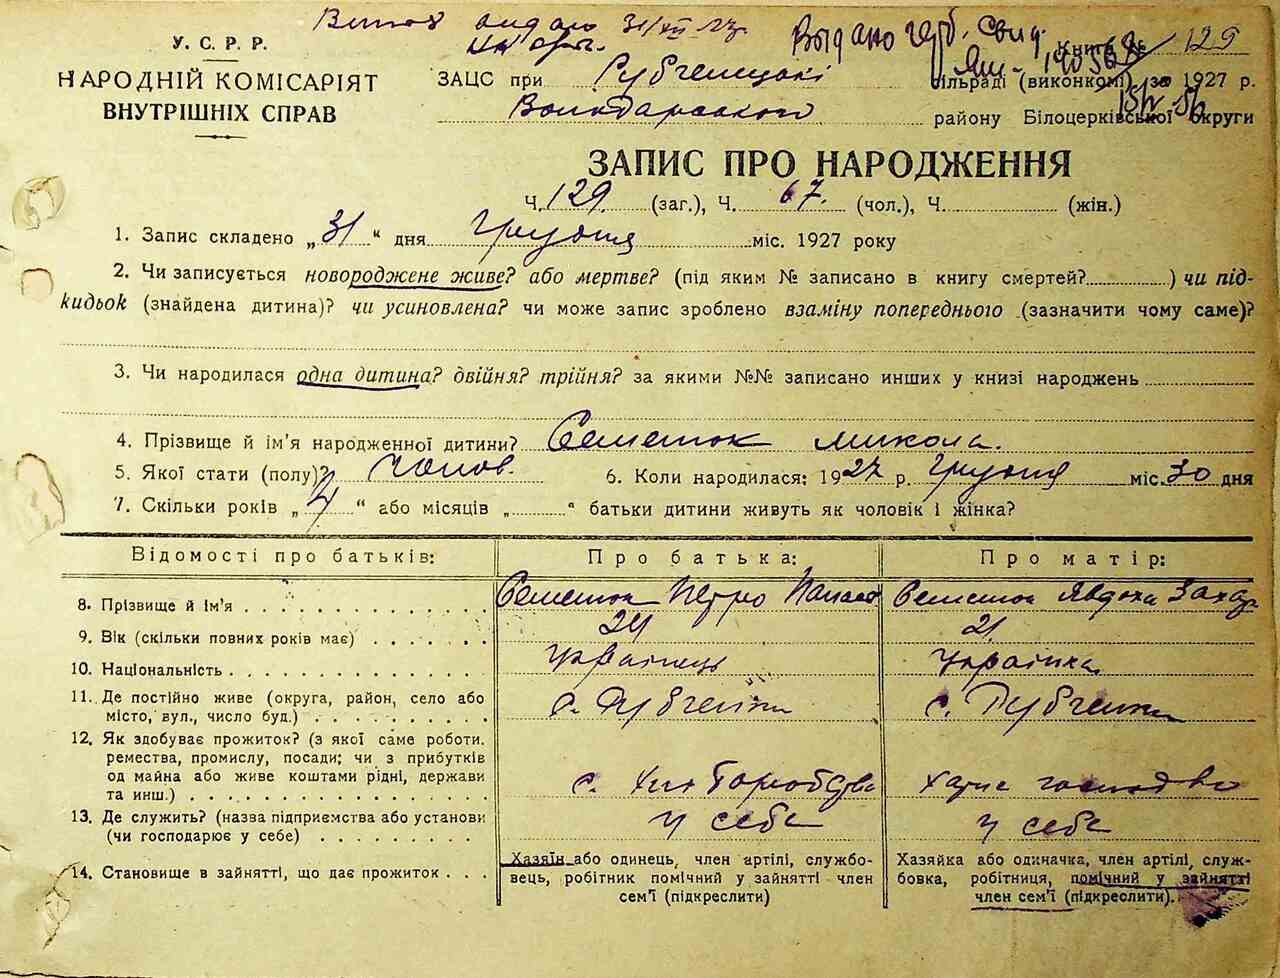 У. С. Р. Р.
НАРОДНІЙ КОМІСАРІЯТ
ВНУТРІШНІХ СПРАВ
видано 31/XII
Выдано герб. Свид.
Книга № 129
ЗАЦС при сільраді (виконкомі) за 1927 р.
району Білоцерківської округи
ЗАПИС ПРО НАРОДЖЕННЯ
Ч. 129. (заг.), Ч. 67. (чол.), Ч. (жін.)
1. Запис складено „ 31 “ дня Грудня міс. 1927 року
2. Чи записується новороджене живе? або мертве? (під яким № записано в книгу смертей? ) чи під-
кидьок (знайдена дитина)? чи усиновлена? чи може запис зроблено взаміну попереднього (зазначити чому саме)?
3. Чи народилася одна дитина? двійня? трійня? за якими №№ записано инших у книзі народжень
4. Прізвище й ім'я народженної дитини? Семенюк Микола.
5. Якої стати (полу)? Чолов. 6. Коли народилася: 1927 р. Грудня міс. 30 дня
7. Скільки років „ 4 “ або місяців „ “ батьки дитини живуть як чоловік і жінка?
Відомості про батьків: Про батька: Про матір:
8. Прізвище й ім'я Семенюк Петро Семенюк Явдоха Захар
9. Вік (скільки повних років має) 24 21
10. Національність Українець Українка
11. Де постійно живе (округа, район, село або
місто, вул., число буд.) с. с.
12. Як здобуває прожиток? (з якої саме роботи,
ремества, промислу, посади; чи з прибутків
од майна або живе коштами рідні, держави
та инш.) с.
13. Де служить? (назва підприємства або установи
(чи господарює у себе) у себе у себе
14. Становище в зайнятті, що дає прожиток
Хазяїн або одинець, член артілі, службо-
вець, робітник помічний у зайнятті член
сем'ї (підкреслити)
Хазяйка або одиначка, член артілі, служ-
бовка, робітниця, помічний у зайнятті
член сем'ї (підкреслити).